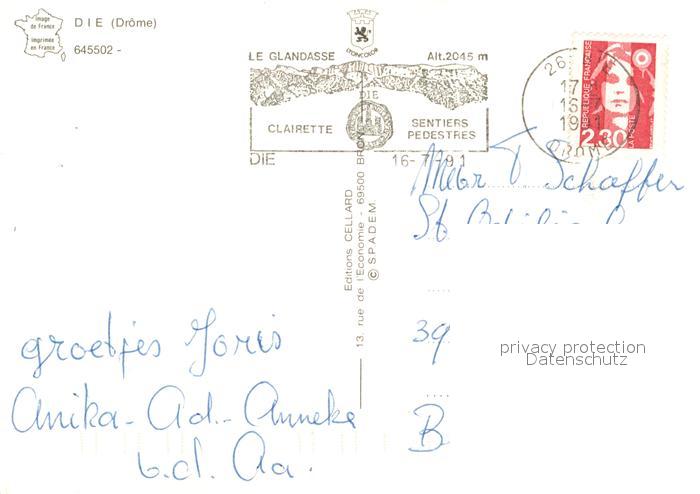 image
de France
imprimée
en France
DIE (Drôme)
645502 -
LYONCOLOR
LE GLANDASSE Alt.2045 m
DIE
CLAIRETTE
SENTIERS
PEDESTRES
DIE 16-7-91
26 DIE
17 H
16-7
1991
DROME
REPUBLIQUE FRANÇAISE
LA POSTE
2,30
Editions CELLARD
13, rue de l'Economie - 69500 BRON
© S.P.A.D.E.M.
Mevr T Schaffer
St
39
B
groetjes Joris
Anika- Ad.- Anneke
v.d. Aa.
privacy protection
Datenschutz